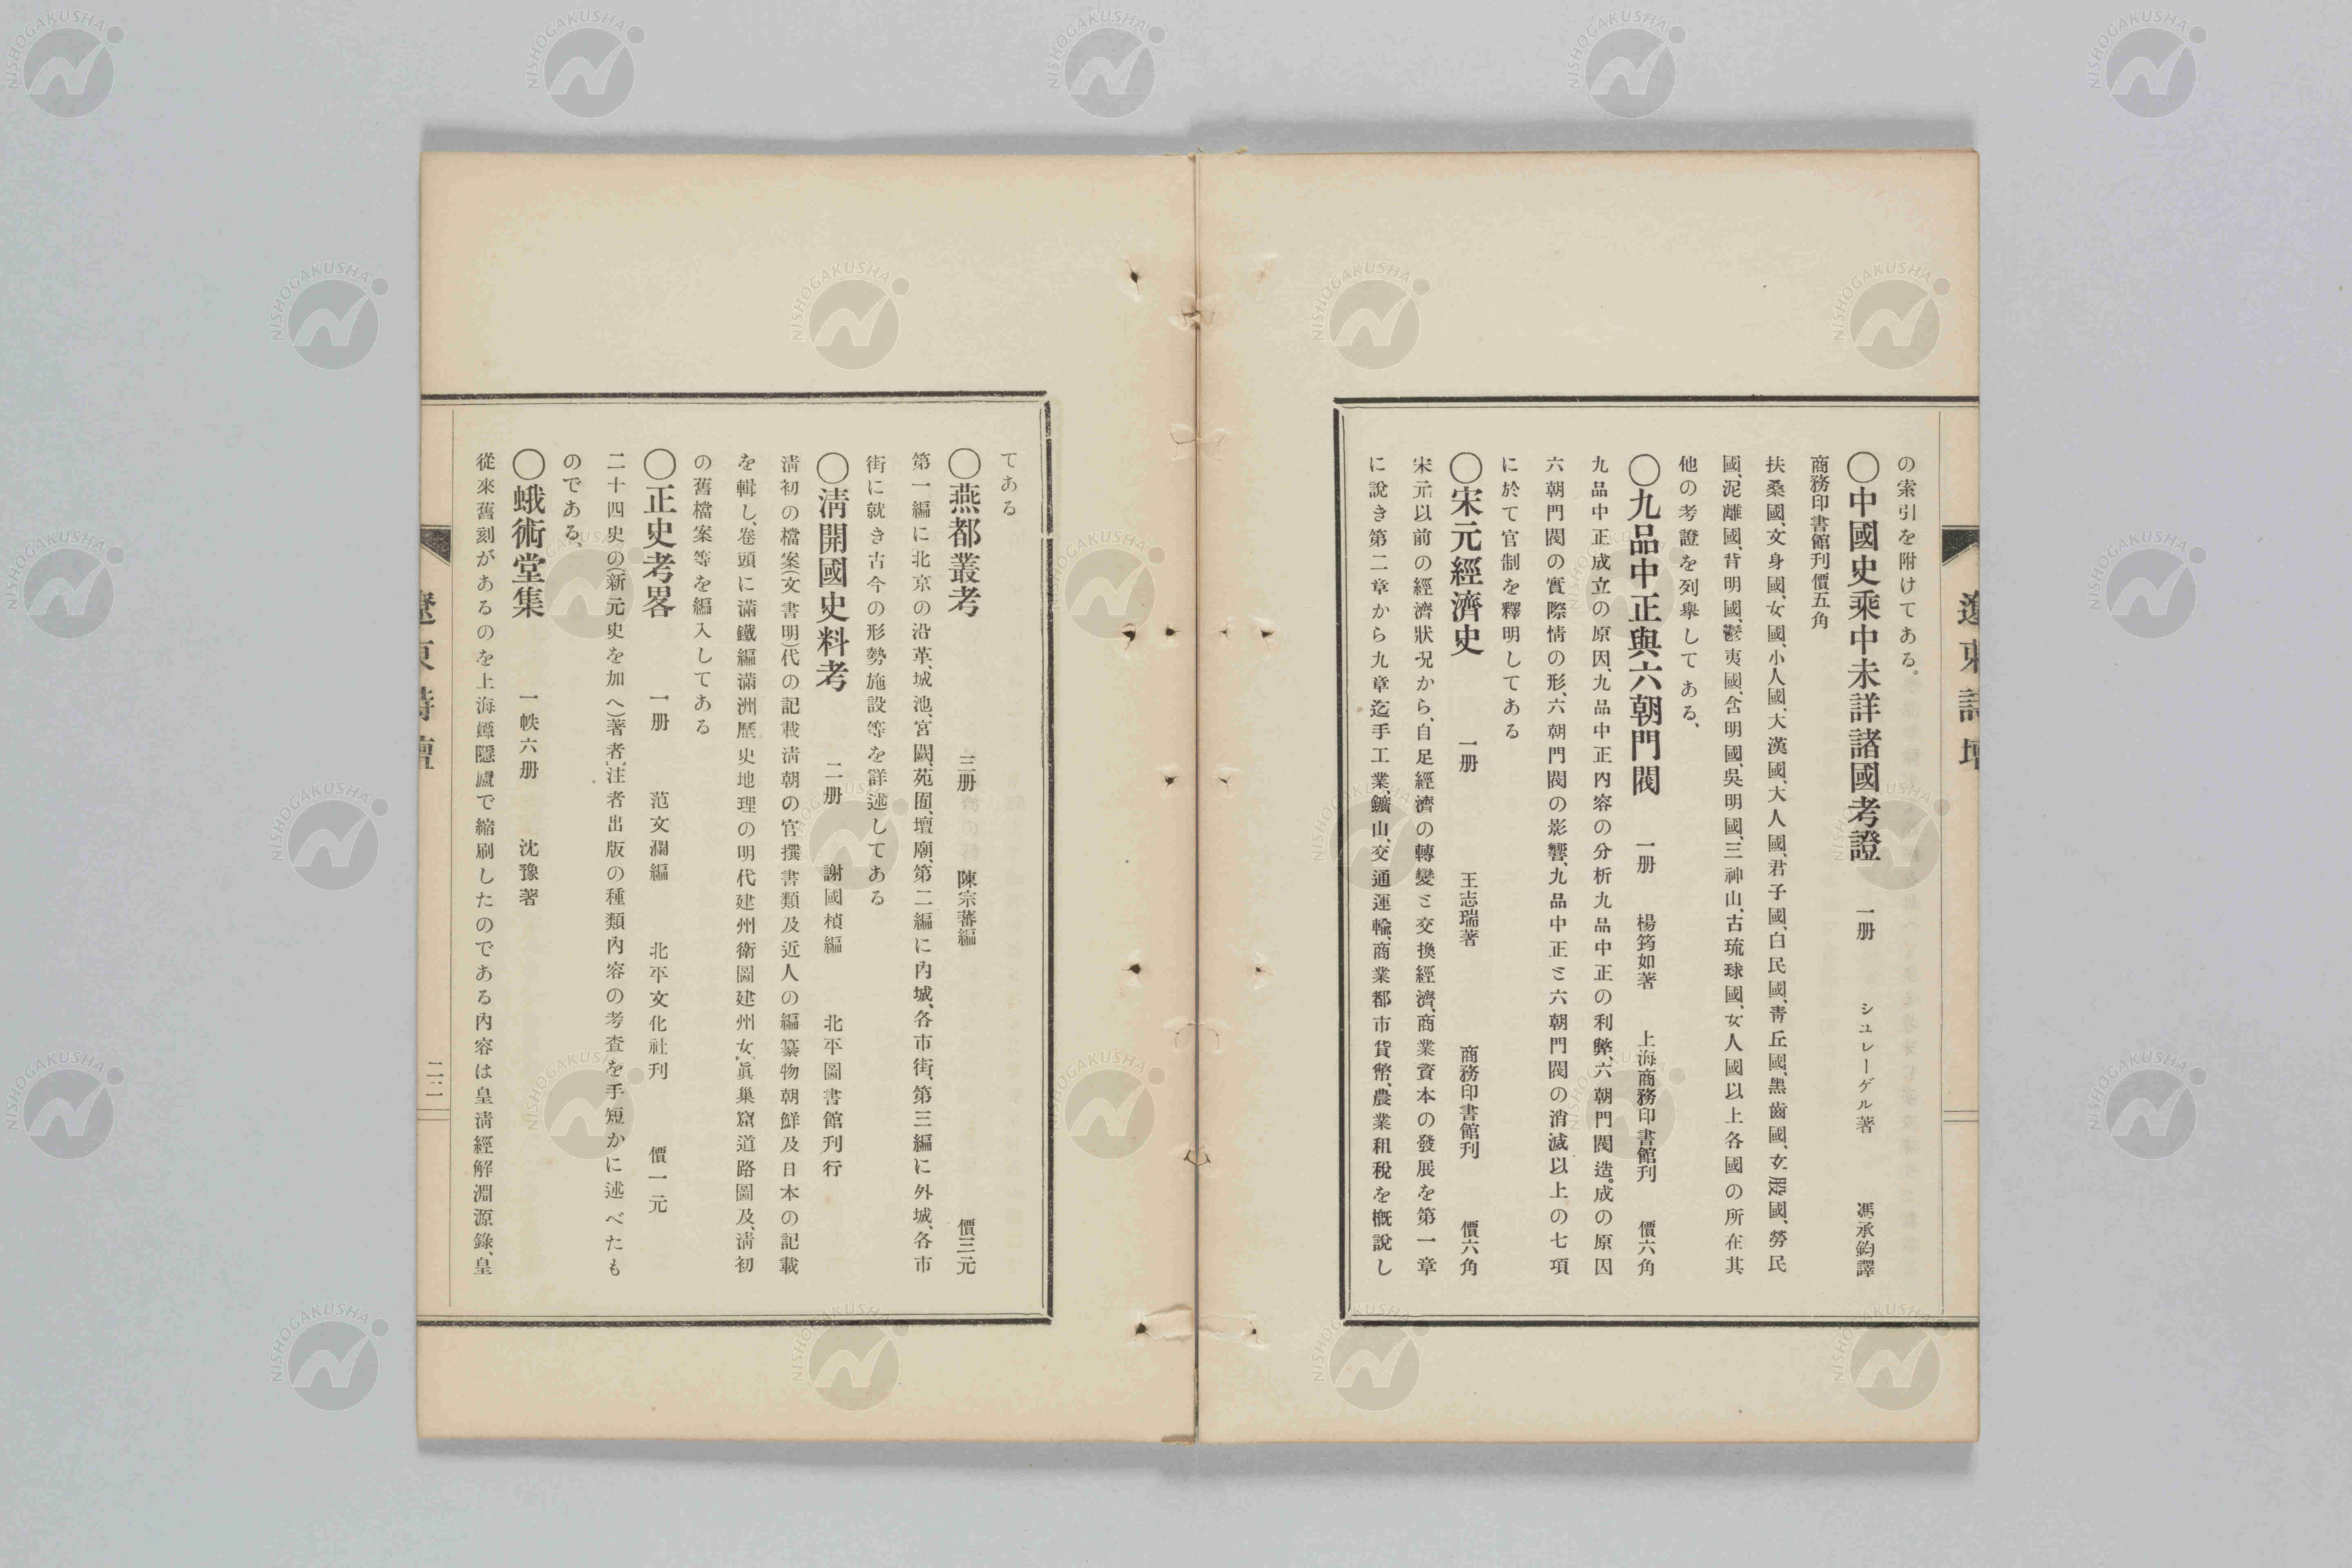 の索引を附けてある。
〇中國史乘中未詳諸國考證 一册 シユレーゲル著 馮承鈞譯
商務印書館刊價五角
扶桑國、文身國、女國、小人國、大漢國、大人國、君子國、白民國、靑丘國、黑齒國、玄殿國、勞民
國、泥離國、背明國、鬱夷國、含明國、吳明國、三神山、古琉球國、女人國以上各國の所在其
他の考證を列擧してある、
〇九品中正與六朝門閥 一册 楊筠如著 上海商務印書館刊 價六角
九品中正成立の原因、九品中正內容の分析九品中正の利弊、六朝門閥造。成の原因
六朝門閥の實際情の形、六朝門閥の影響、九品中正ミ六朝門閥の消滅以上の七項
に於て官制を釋明してある
〇宋元經濟史 一册 王志瑞著 商務印書館刊 價六角
宋元以前の經濟狀况から、自足經濟の轉變ミ交換經濟、商業資本の發展を第一章
に說き第二章から九章迄手工業、鑛山、交通運輸、商業都市貨幣、農業租稅を槪說し
遼東詩壇
てある
〇燕都叢考 三册 陳宗蕃編 價三元
第一編に北京の沿革、城池、宮闕、苑囿、壇廟、第二編に內城、各市街、第三編に外城、各市
街に就き古今の形勢施設等を詳述してある
〇淸開國史料考 二册 謝國楨編 北平圖書館刊行
淸初の檔案(文書明)代の記載淸朝の官撰書類及近人の編纂物朝鮮及日本の記載
を輯し、卷頭に滿鐵編滿洲歷史地理の明代建州衛圖建州女眞巢窟道路圖及、淸初
の舊檔案等を編入してある
〇正史考畧 一册 范文瀾編 北平文化社刊 價一元
二十四史の(新元史を加へ)著者、注者出版の種類內容の考査を手短かに述べたも
のである、
〇蛾術堂集 一帙六册 沈豫著
從來舊刻があるのを上海蟫隱廬で縮刷したのである內容は皇淸經解淵源錄、皇
遼東詩壇
二二
NISHOGAKUSHA